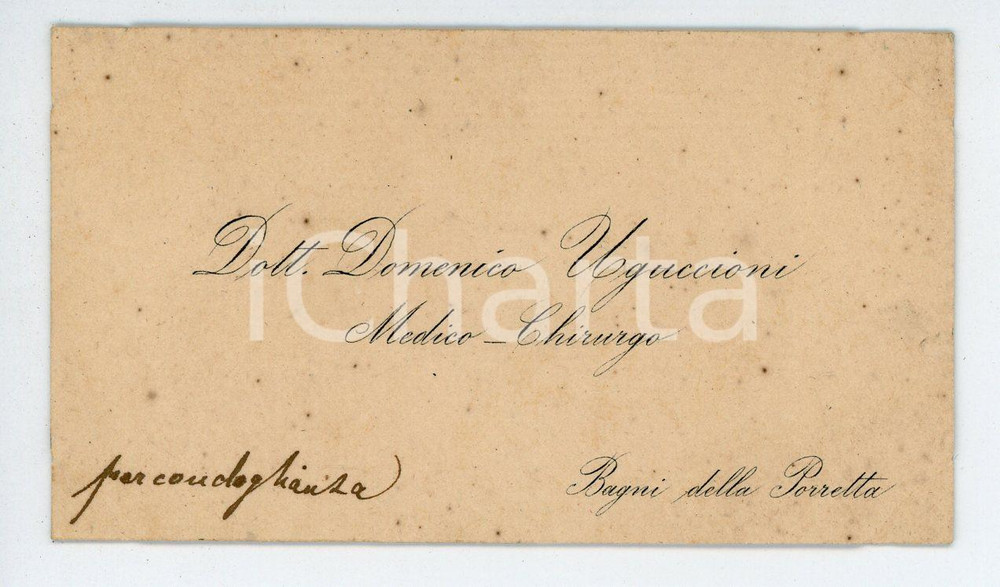 Dott. Domenico Uguccioni
Medico-Chirurgo
per condoglianza
Bagni della Porretta
iCharta